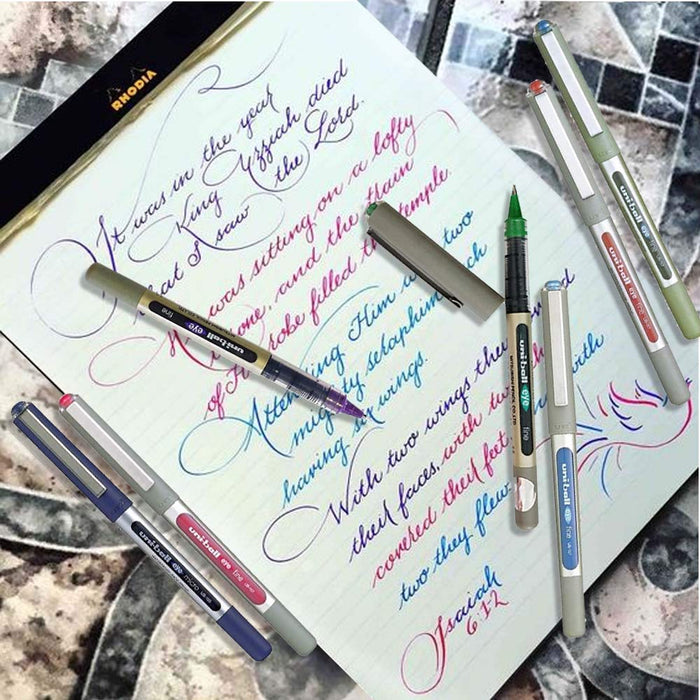 RHODIA
It was in the year
King Uzziah died
that I saw the Lord.
He was sitting on a lofty
throne, and the train
of His robe filled the temple.
Attending Him were two
mighty seraphim, each
having six wings.
With two wings they covered
their faces, with two they
covered their feet, with
two they flew.
Isaiah
6:1-2
uni-ball eye fine
uni-ball eye fine
uni-ball eye fine
uni-ball eye fine
uni-ball eye fine
uni-ball eye micro
uni-ball eye fine
MITSUBISHI PENCIL CO. LTD